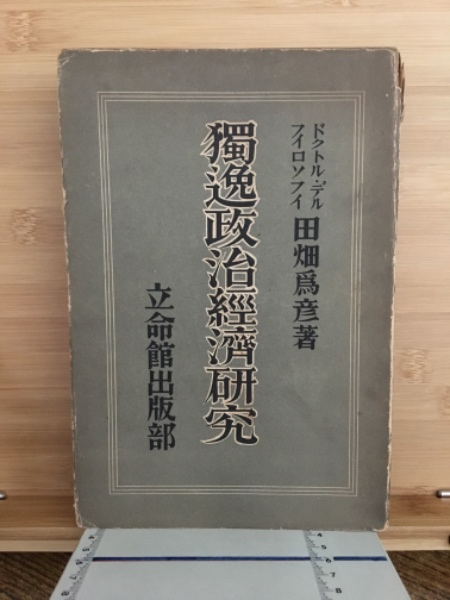 ドクトル・デル
フイロソフイ
田畑爲彦著
獨逸政治經濟硏究
立命館出版部